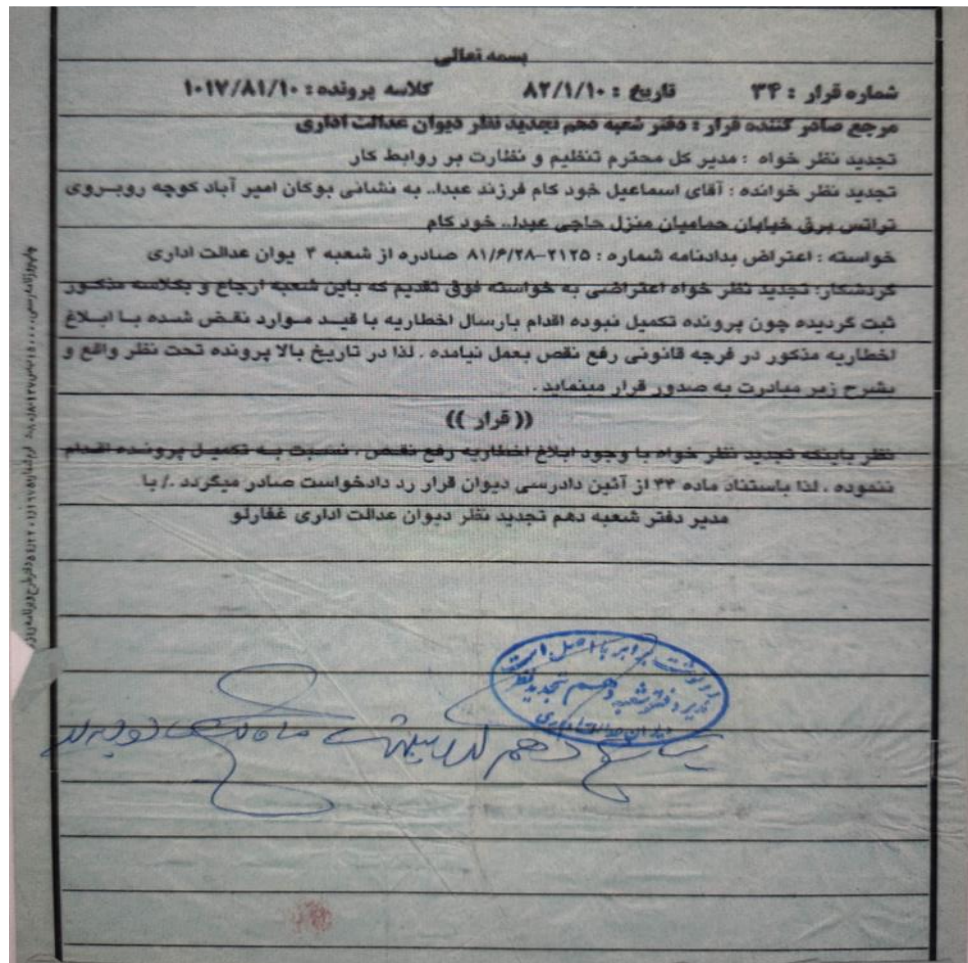 بسمه تعالی
شماره قرار : ۳۴ تاریخ : ۸۲/۱/۱۰ کلاسه پرونده : ۱۰۱۷/۸۱/۱۰
مرجع صادر کننده قرار : دفتر شعبه دهم تجدید نظر دیوان عدالت اداری
تجدید نظر خواه : مدیر کل محترم تنظیم و نظارت بر روابط کار
تجدید نظر خوانده : آقای اسماعیل خود کام فرزند عبدا.. به نشانی بوکان امیر آباد کوچه روبروی
ترانس برق خیابان حمامیان منزل حاجی عبدا.. خود کام
خواسته : اعتراض بدادنامه شماره : ۲۱۲۵-۸۱/۶/۲۸ صادره از شعبه ۴ یوان عدالت اداری
گردشکار: تجدید نظر خواه اعتراضی به خواسته فوق تقدیم که باین شعبه ارجاع و بکلاسه مذکور
ثبت گردیده چون پرونده تکمیل نبوده اقدام بارسال اخطاریه با قید موارد نقض شده با ابلاغ
اخطاریه مذکور در فرجه قانونی رفع نقص بعمل نیامده . لذا در تاریخ بالا پرونده تحت نظر واقع و
بشرح زیر مبادرت به صدور قرار مینماید .
(( قرار ))
نظر باینکه تجدید نظر خواه با وجود ابلاغ اخطاریه رفع نقص ، نسبت به تکمیل پرونده اقدام
ننموده . لذا باستناد ماده ۴۴ از آئین دادرسی دیوان قرار رد دادخواست صادر میگردد ./ با
مدیر دفتر شعبه دهم تجدید نظر دیوان عدالت اداری غفارلو
رونوشت برابر با اصل است
مدیر دفتر شعبه دهم تجدید نظر
دیوان عدالت اداری